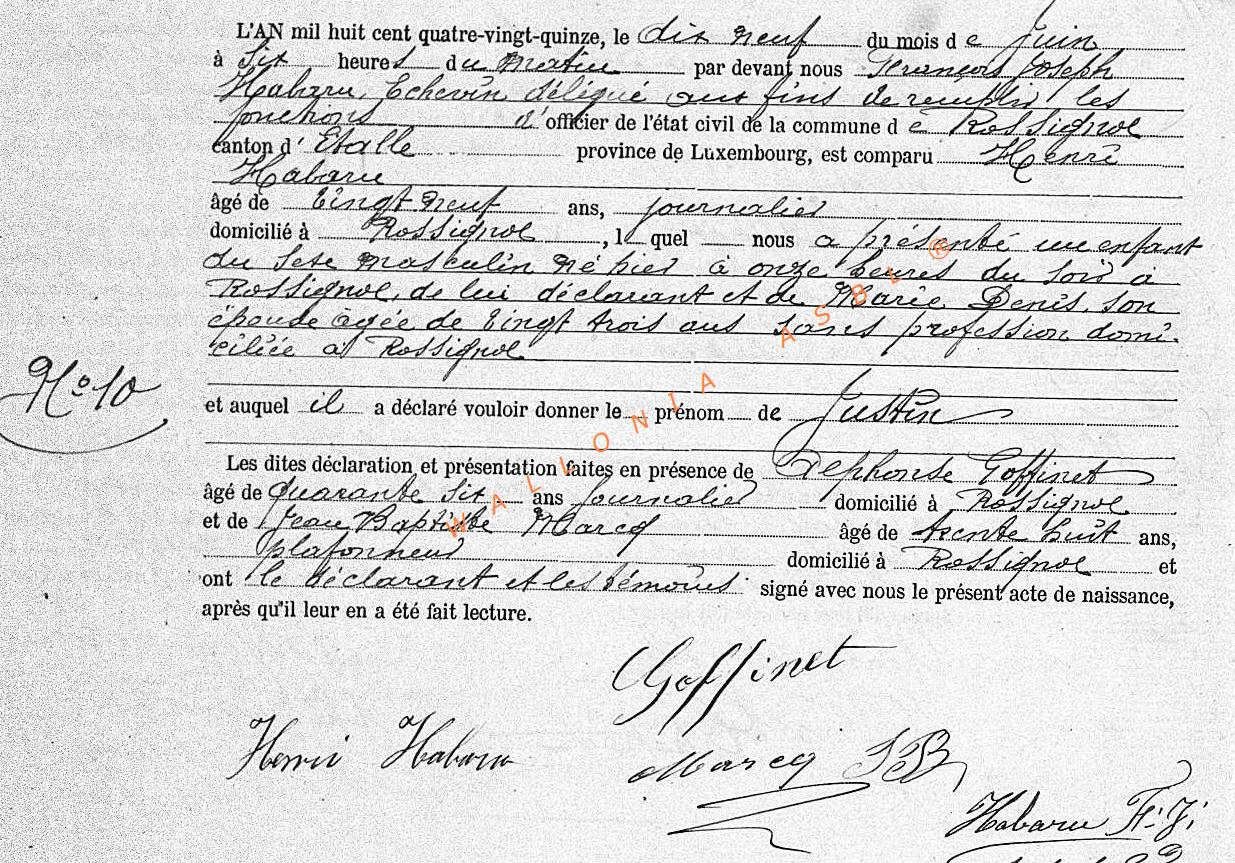 L'AN mil huit cent quatre-vingt-quinze, le dix neuf du mois de Juin
à Six heures du matin par devant nous François Joseph
Habaru, Echevin délégué aux fins de remplir les
fonctions d'officier de l'état civil de la commune de Rossignol
canton d'Etalle province de Luxembourg, est comparu Henri
Habaru
âgé de Vingt neuf ans, journalier
domicilié à Rossignol, lequel nous a présenté un enfant
du sexe masculin né hier à onze heures du soir à
Rossignol, de lui déclarant et de Marie Denis, son
épouse agée de Vingt trois ans sans profession domi-
ciliée à Rossignol
No 10
et auquel il a déclaré vouloir donner le prénom de Justin
Les dites déclaration et présentation faites en présence de Goffinet
âgé de Quarante six ans journalier domicilié à Rossignol
et de Jean Baptiste Marcq âgé de trente huit ans,
plafonneur domicilié à Rossignol et
ont le déclarant et les témoins signé avec nous le présent acte de naissance,
après qu'il leur en a été fait lecture.
Goffinet
Henri Habaru
Marcq JB
Habaru F. J.
WALLONIA ASBL ®